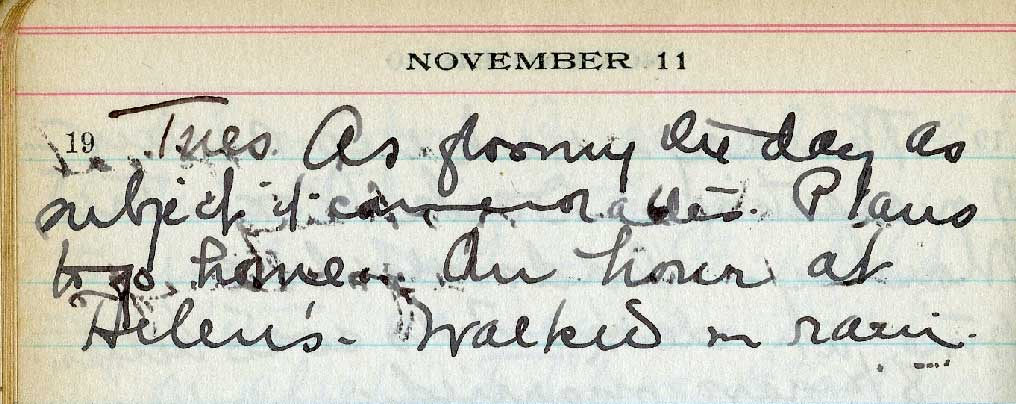 NOVEMBER 11
19 Tues. As gloomy the day as
subject it commemorates. Plans
to go home. An hour at
Helen's - Walked in rain.